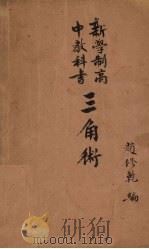 新學制高
中教科書
三角術
趙修乾編